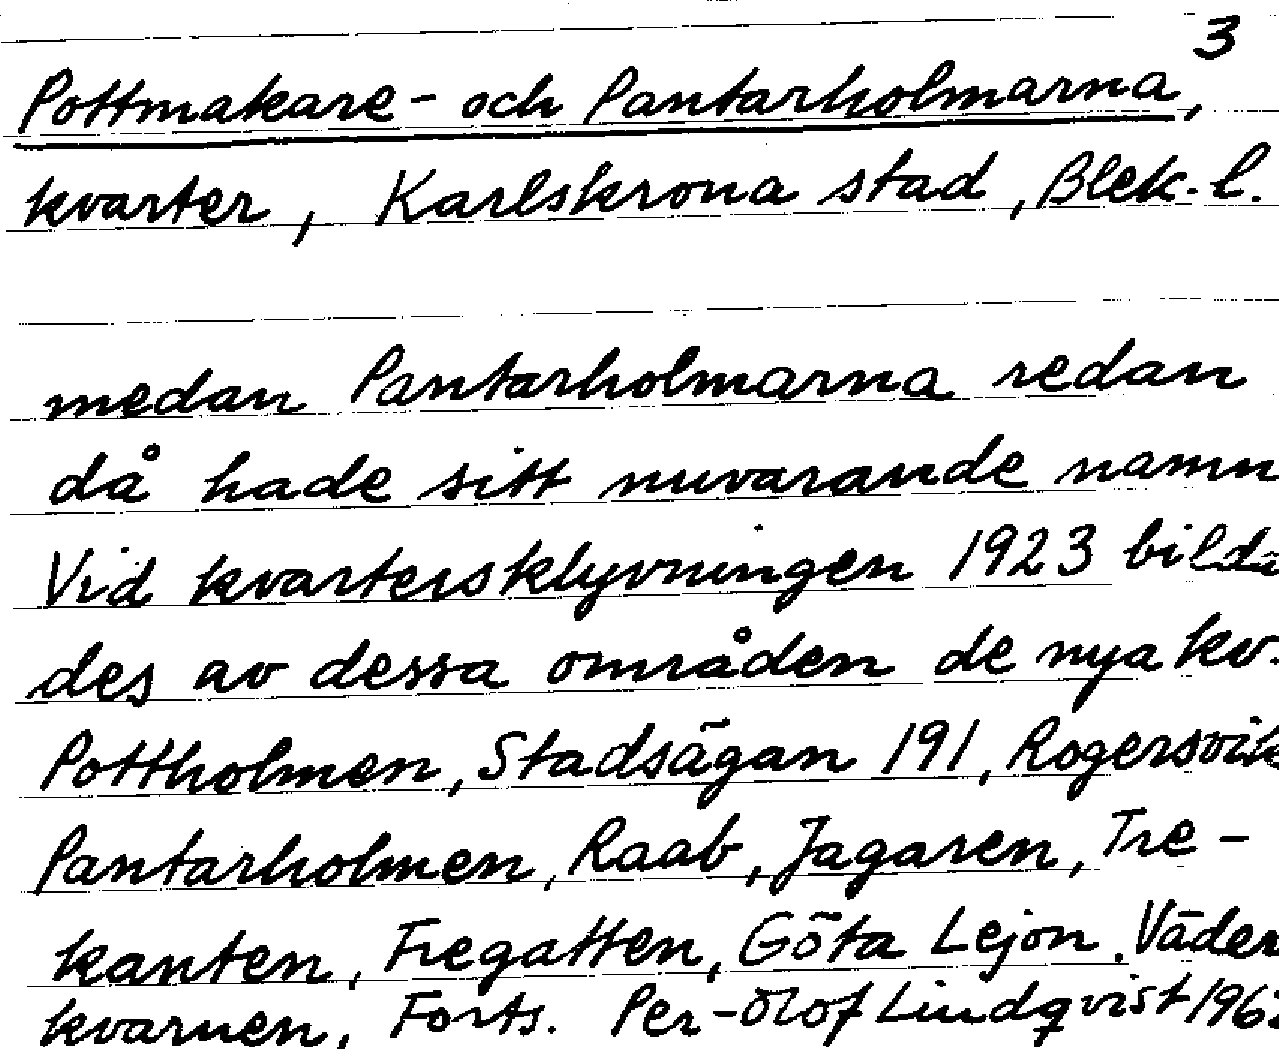 3
Pottmakare- och Pantarholmarna,
kvarter, Karlskrona stad, Blek. l.
medan Pantarholmarna redan
då hade sitt nuvarande namn
Vid kvartersklyvningen 1923 bilda
des av dessa områden de nya kv.
Pottholmen, Stadsägan 191, Rogersvik
Pantarholmen, Raab, Jagaren, Tre-
kanten, Fregatten, Göta Lejon, Väder
kvarnen, Forts. Per-Olof Lindqvist